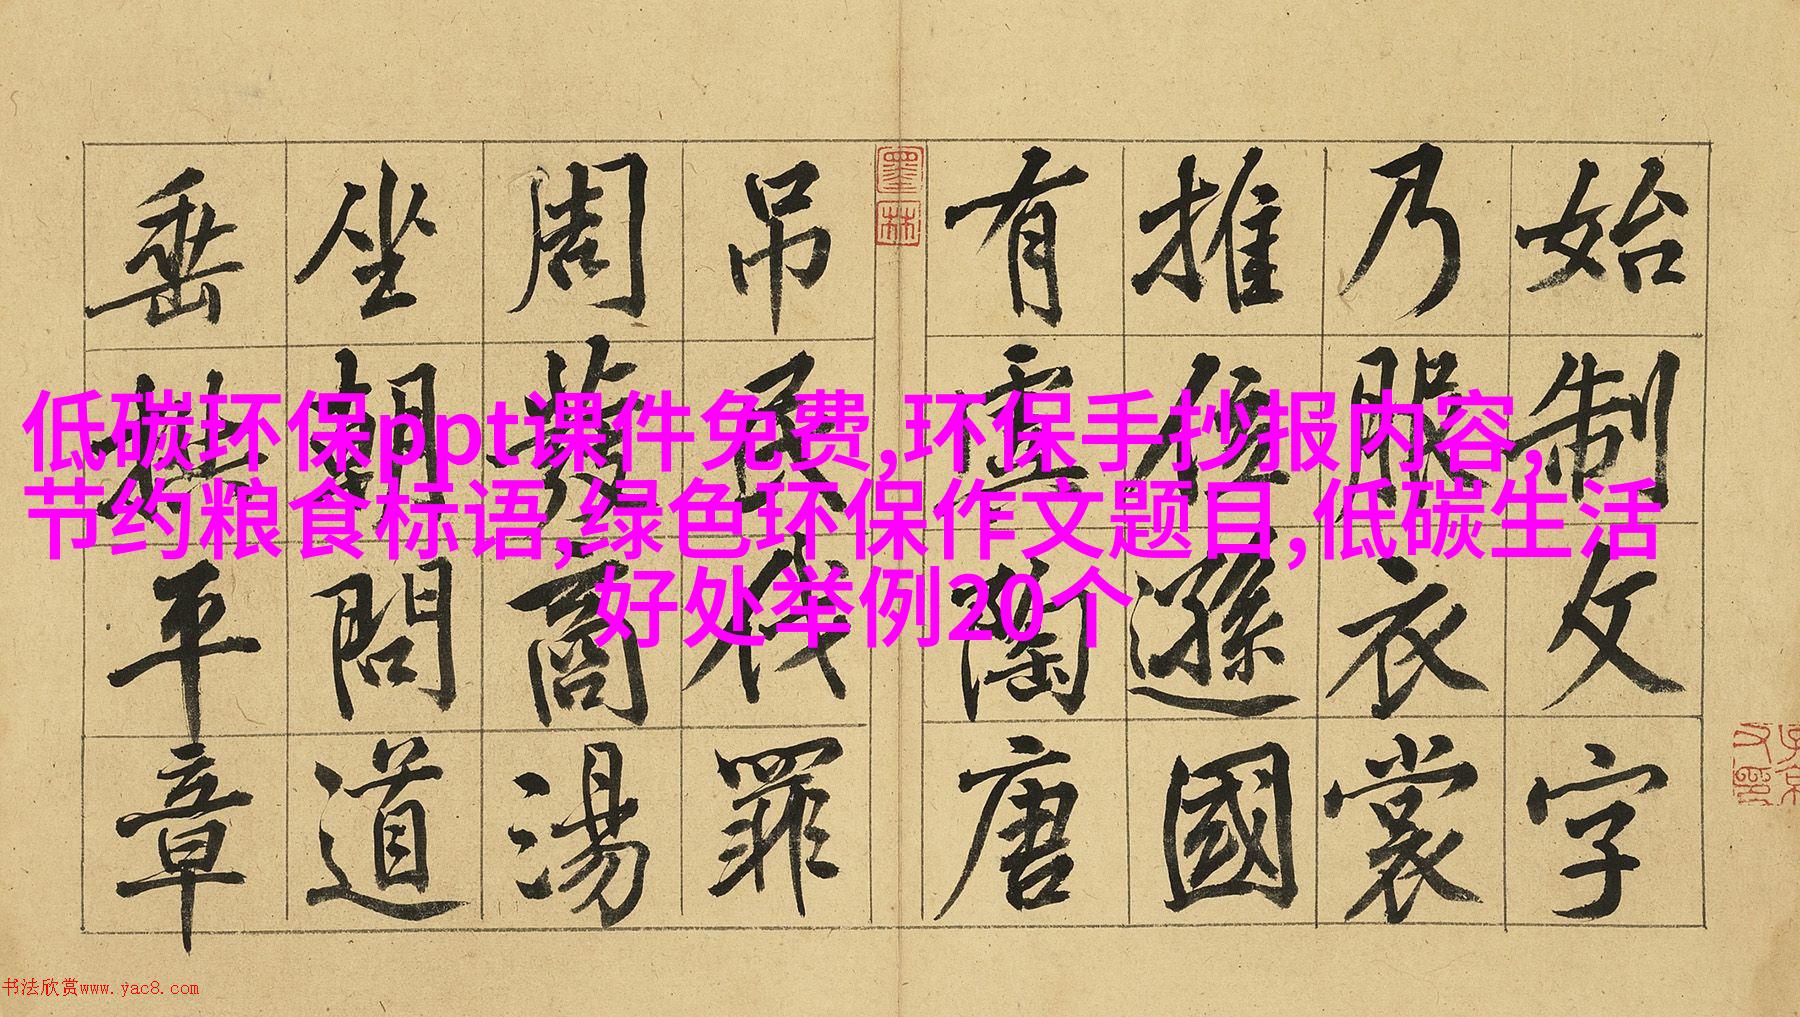 始制文字
乃服衣裳
推位遜國
有虞陶唐
吊民伐罪
周發商湯
坐朝問道
垂拱平章
墨林
低碳环保ppt课件免费,环保手抄报内容,
节约粮食标语,绿色环保作文题目,低碳生活
好处举例20个
书法欣赏www.yac8.com